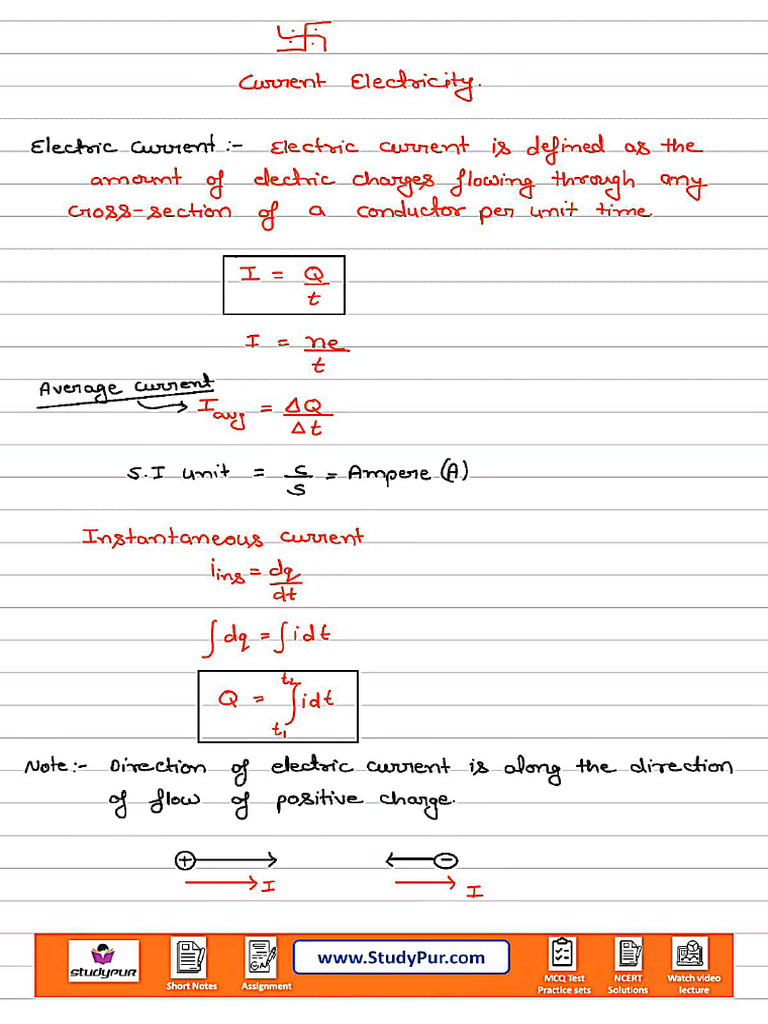 Current Electricity.
Electric Current :- Electric current is defined as the
amount of electric charges flowing through any
cross-section of a conductor per unit time
I = Q/t
I = ne/t
Average current
I avg = ΔQ/Δt
S.I unit = C/S = Ampere (A)
Instantaneous current
i ins = dq/dt
∫dq = ∫idt
Q = ∫ t₁ t₂ idt
Note :- Direction of electric current is along the direction
of flow of positive charge.
+ −
I I
studypur
Short Notes
Assignment
www.StudyPur.com
MCQ Test
Practice sets
NCERT
Solutions
Watch video
lecture